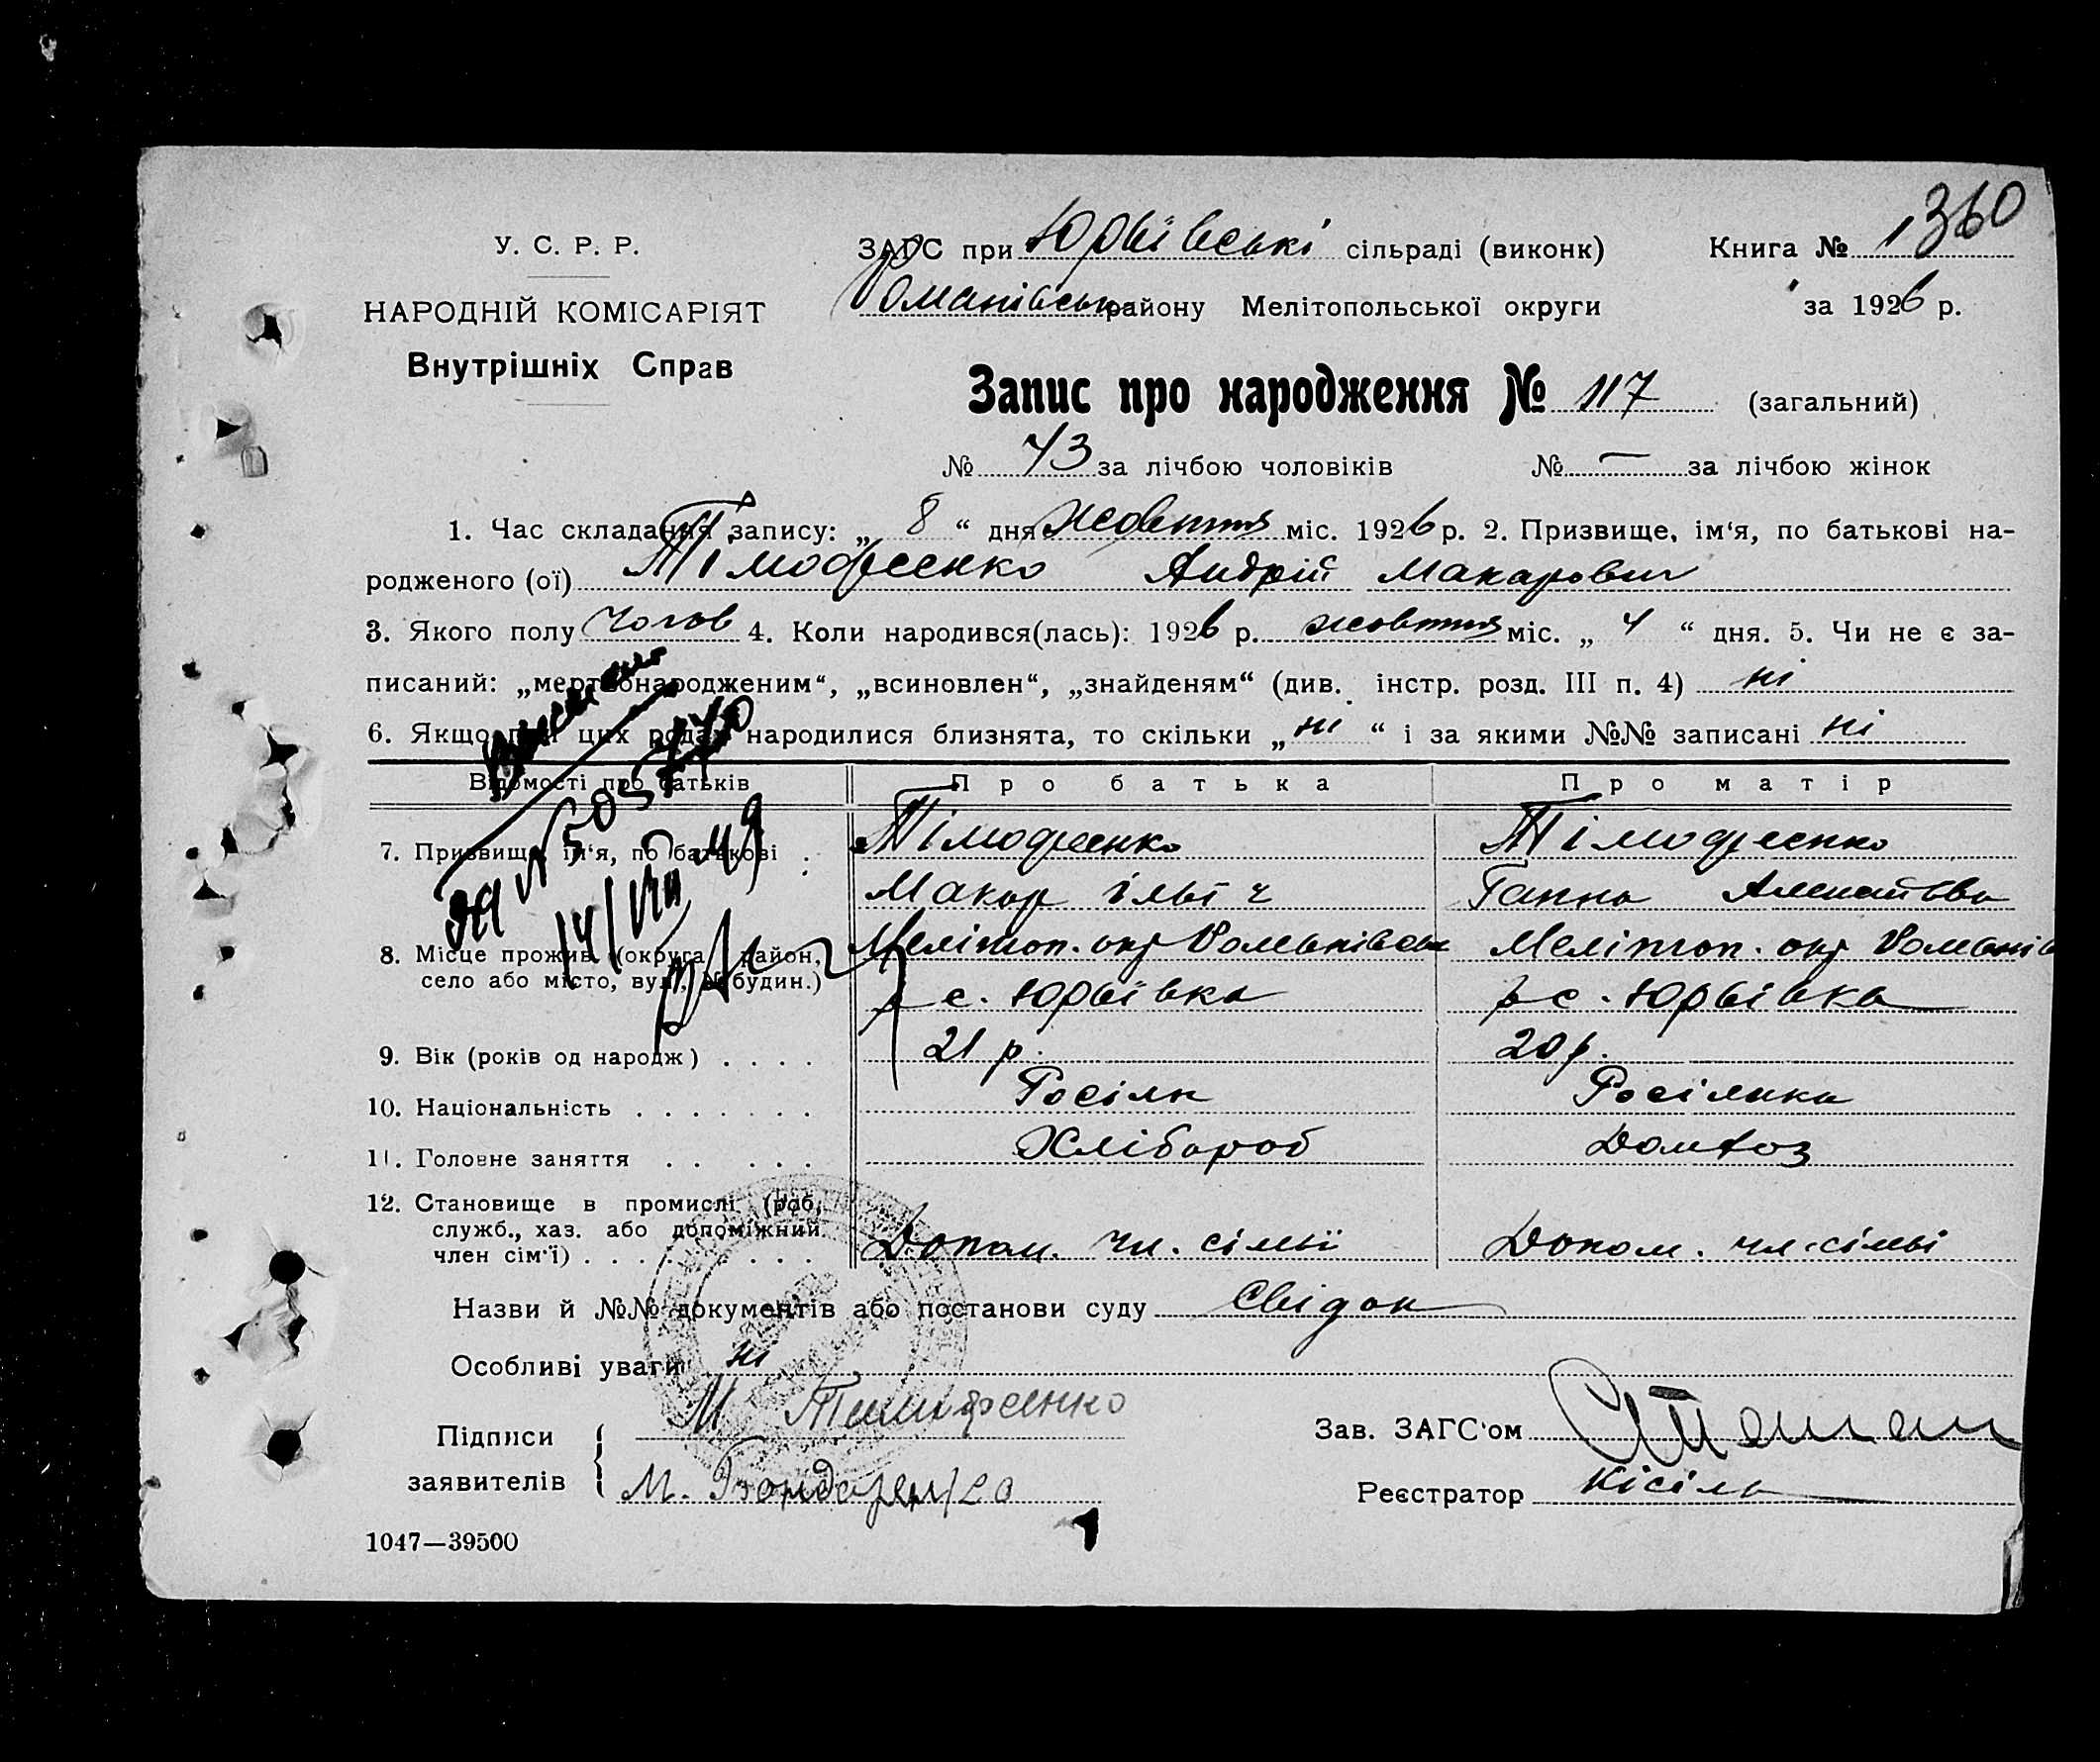 1360
У. С. Р. Р.
ЗАГС при Юрьївські сільраді (виконк) Книга №
НАРОДНІЙ КОМІСАРІЯТ
Романівськ району Мелітопольської округи за 1926 р.
Внутрішніх Справ
Запис про народження № 117 (загальний)
№ 73 за лічбою чоловіків № — за лічбою жінок
1. Час складання запису: „ 8 “ дня жовтня міс. 1926 р. 2. Призвище, ім‘я, по батькові на-
родженого (ої) Тімофеєнко Андрій Макарович
3. Якого полу чолов 4. Коли народився(лась): 1926 р. жовтня міс. „ 4 “ дня. 5. Чи не є за-
писаний: „мертвонародженим“, „всиновлен“, „знайденям“ (див. інстр. розд. III п. 4) ні
6. Якщо при цих родах народилися близнята, то скільки „ ні “ і за якими №№ записані ні
Відомості про батьків Про батька Про матір
7. Призвище, ім‘я, по батькові . Тімофеєнко Тімофеєнко
Макар Ільїч Ганна
8. Місце прожив. (округа, район, Мелітоп. окр Романівськ Мелітоп. окр Романів
село або місто, вул., № будин.) р с. Юрьївка р с. Юрьївка
за № 50
9. Вік (років од народж) . . . . 21 р. 20 р.
10. Національність . . . . . . . Росіян Росіянка
11. Головне заняття . . . . . Хлібороб Домгоз
12. Становище в промислі (роб,
служб., хаз. або допоміжний Допом. чл. сімьї Допом. чл. сімьї
член сім‘ї) . . . . . . . . .
Назви й №№ документів або постанови суду Свідок
Особливі уваги ні
Підписи М Тимофеенко Зав. ЗАГС‘ом
заявителів М. Бондаренко Реєстратор Кісіль
1047—39500